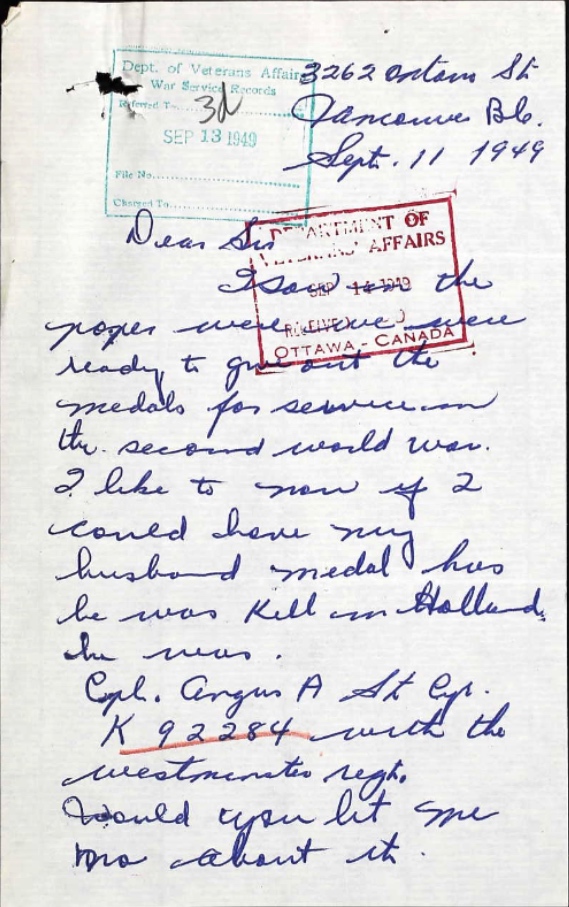 Dept. of Veterans Affairs
War Service Records
Referred To
3d
SEP 13 1949
File No.
Charged To
3262 St
Vancouver B.C.
Sept. 11 1949
DEPARTMENT OF
VETERANS' AFFAIRS
SEP 14 1949
RECEIVED
OTTAWA - CANADA
Dear Sir
I saw in the
paper were we were
ready to give out the
medals for service in
the second world war.
I like to now if I
could have my
husband medal has
he was Kill in Holland.
he was.
Cpl. Angus A St Cyr.
K 92284 with the
westminster regt.
Would you let me
no about it.